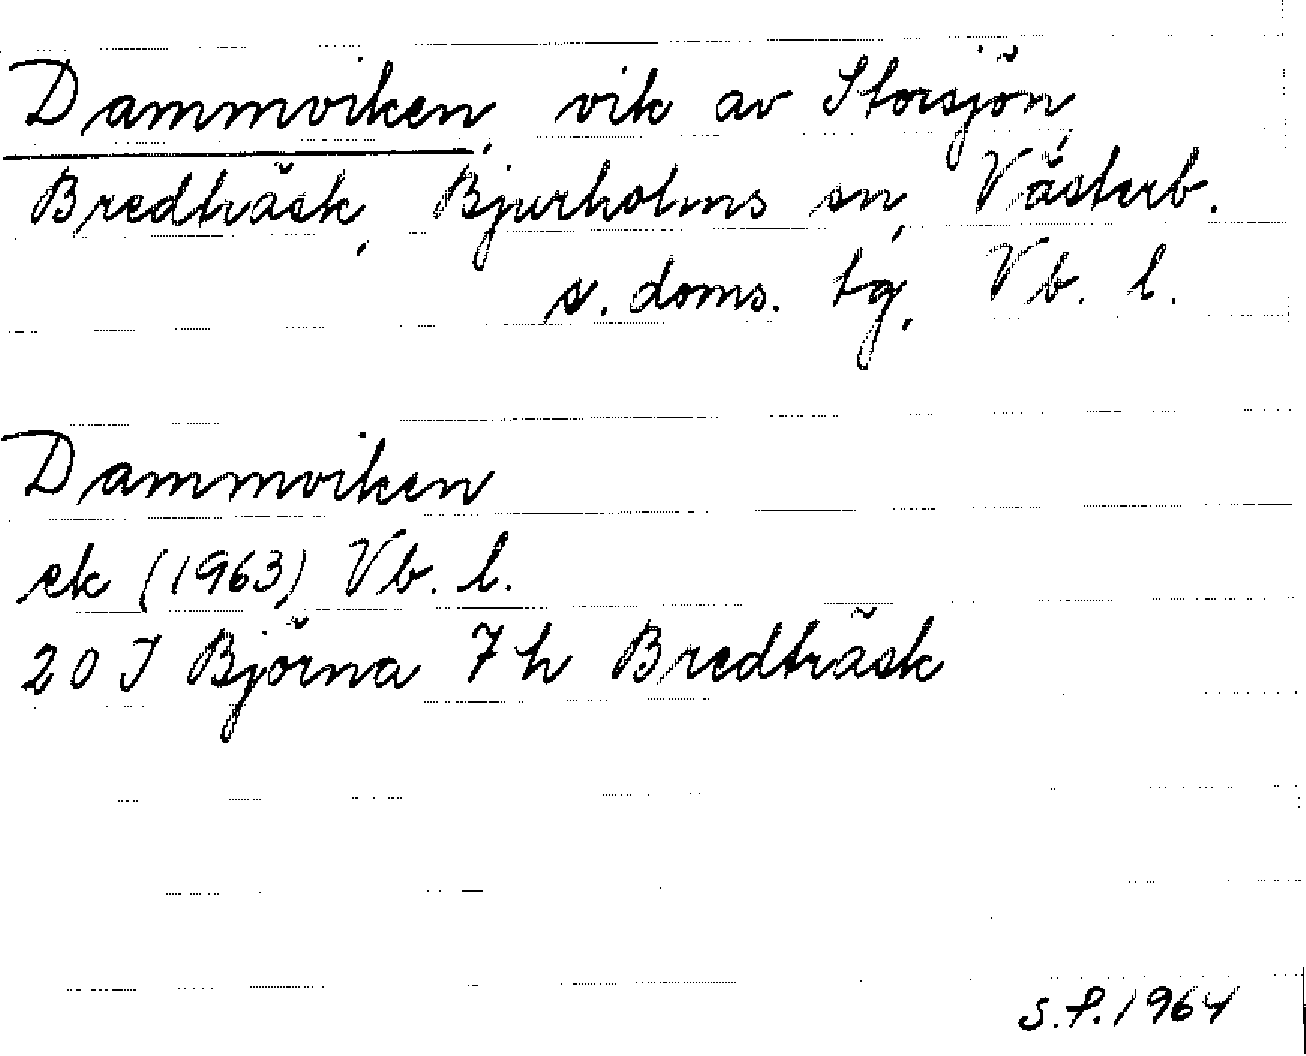 Dammviken, vik av Storsjön,
Bredträsk, Bjurholms sn, Västerb.
s. doms. tg, Vb. l.
Dammviken
ek (1963) Vb. l.
20 J Björna 7 h Bredträsk
S.P. 1964